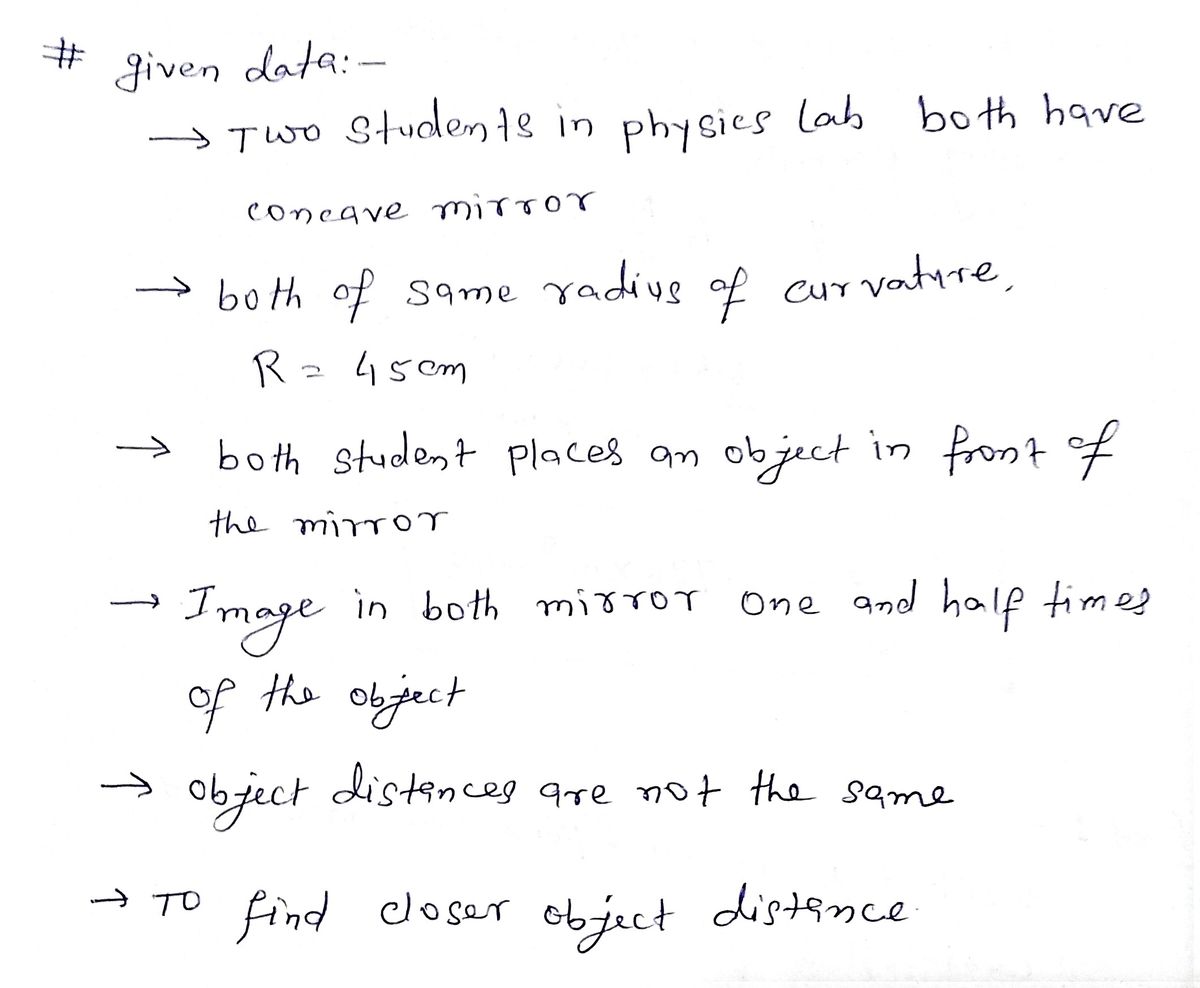 # given data:-
→ Two Students in physics Lab both have
concave mirror
→ both of same radius of curvature,
R = 45cm
→ both student places an object in front of
the mirror
→ Image in both mirror one and half times
of the object
→ object distances are not the same
→ TO find closer object distance.